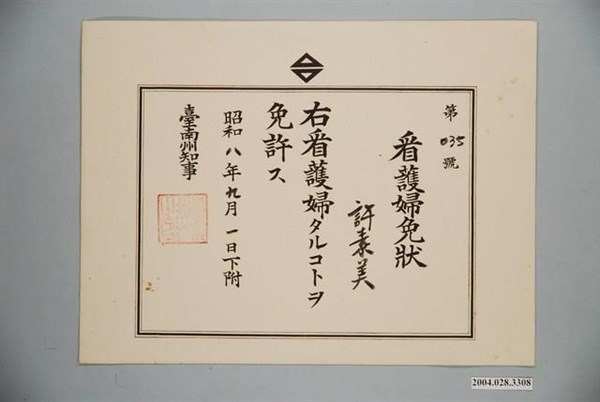 第035號
看護婦免狀
許素美
右看護婦タルコトヲ
免許ス
昭和八年九月一日下附
臺南州知事
2004.028.3308